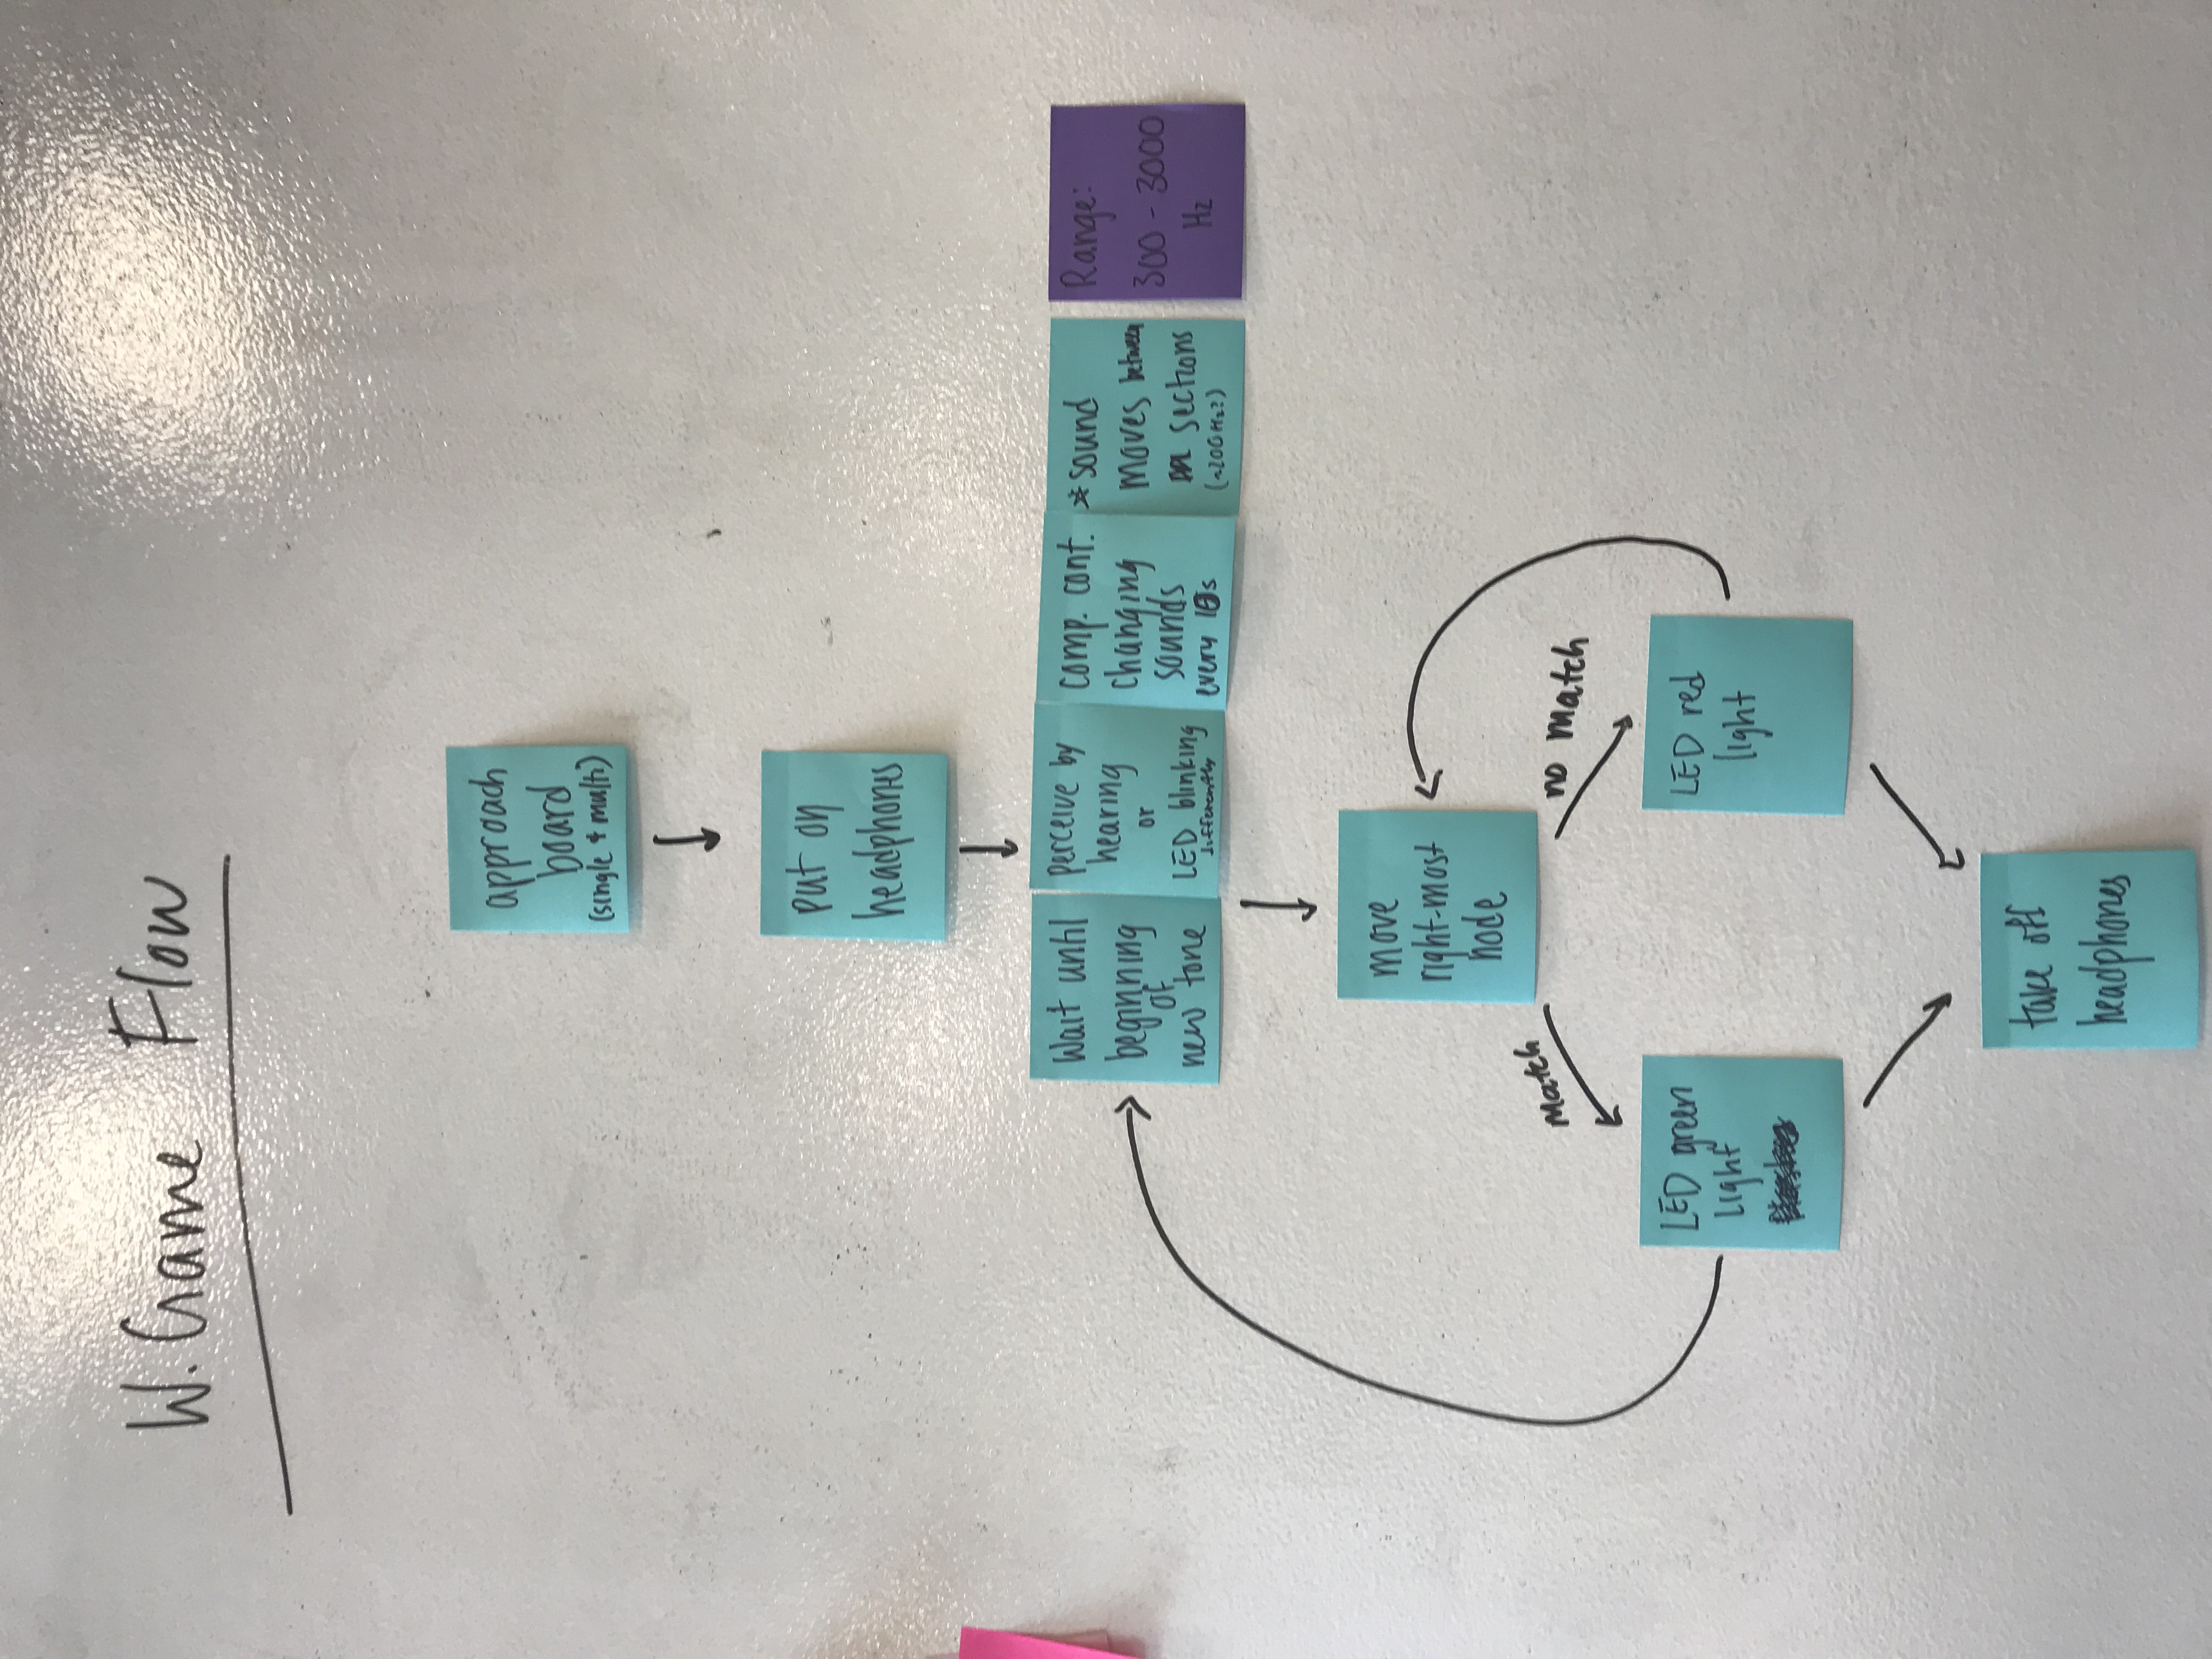 W. Game Flow
approach
board
(single & multi)
put on
headphones
Wait until
beginning
of
new tone
perceive by
hearing
or
LED blinking
differently
comp. cont.
changing
sounds
every 10s
*sound
moves between
sections
(~200Hz?)
Range:
300 - 3000
Hz
move
right-most
node
Match
no Match
LED green
light
LED red
light
take off
headphones